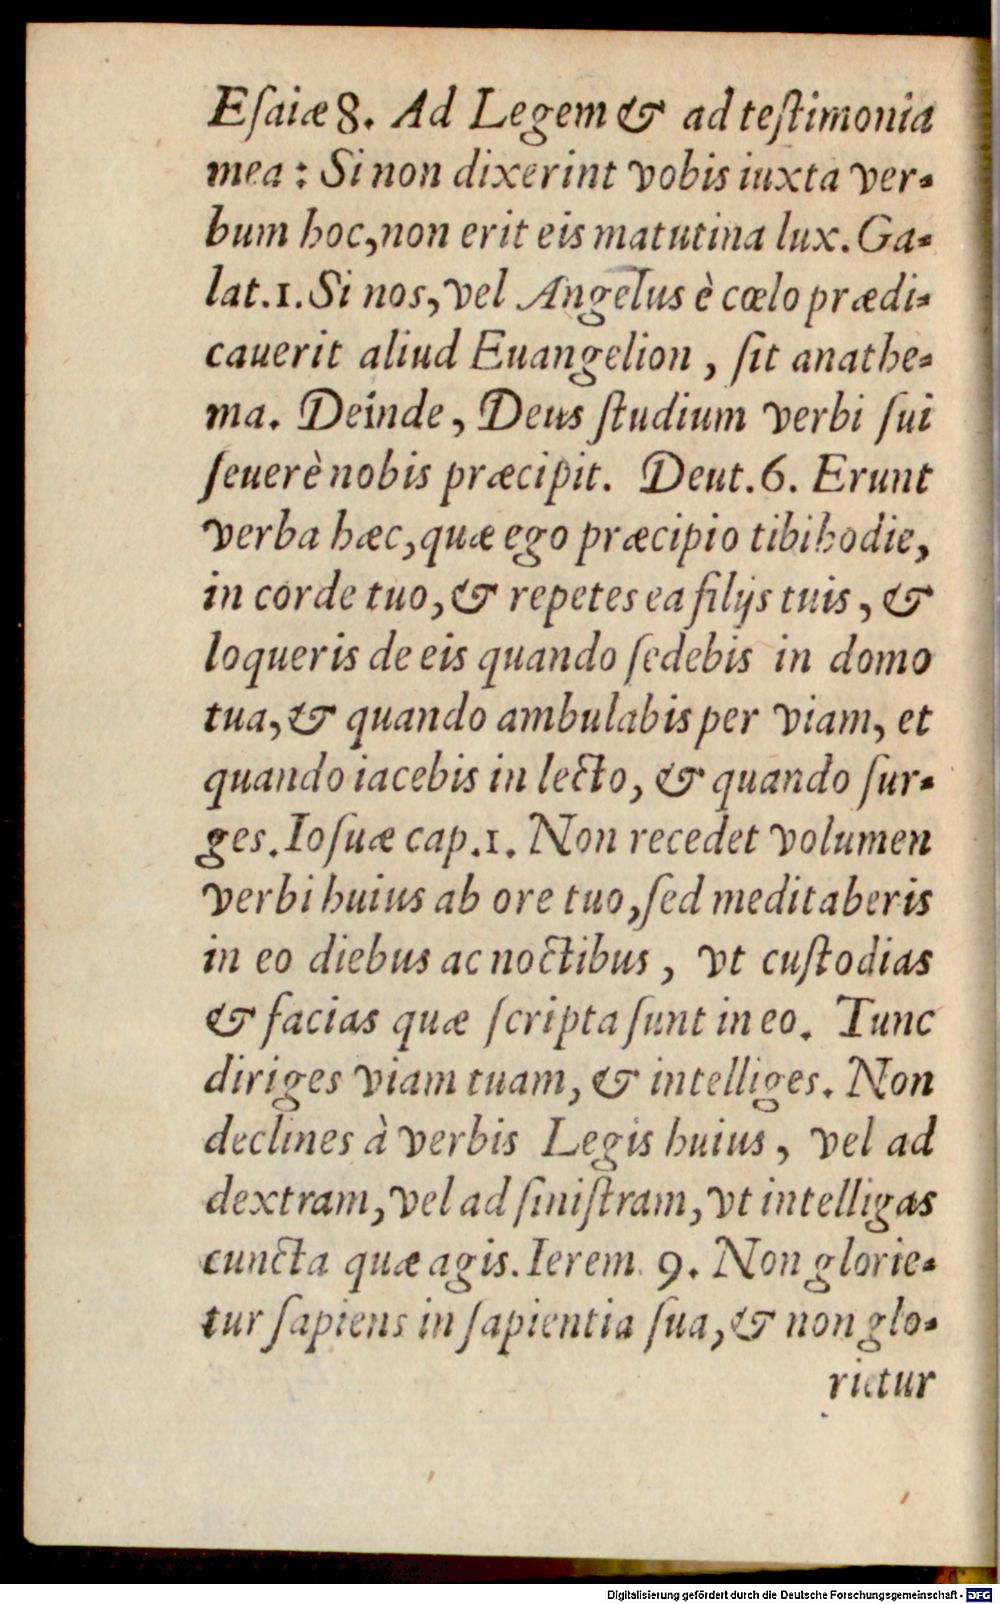 Eſaiæ 8. Ad Legem & ad teſtimonia
mea: Si non dixerint vobis iuxta ver-
bum hoc, non erit eis matutina lux. Ga-
lat. 1. Si nos, vel Angelus è cœlo prædi-
cauerit aliud Euangelion, ſit anathe-
ma. Deinde, Deus ſtudium verbi ſui
ſeuerè nobis præcipit. Deut. 6. Erunt
verba hæc, quæ ego præcipio tibi hodie,
in corde tuo, & repetes ea filijs tuis, &
loqueris de eis quando ſedebis in domo
tua, & quando ambulabis per viam, et
quando iacebis in lecto, & quando ſur-
ges. Ioſuæ cap. 1. Non recedet volumen
verbi huius ab ore tuo, ſed meditaberis
in eo diebus ac noctibus, vt cuſtodias
& facias quæ ſcripta ſunt in eo. Tunc
diriges viam tuam, & intelliges. Non
declines à verbis Legis huius, vel ad
dextram, vel ad ſiniſtram, vt intelligas
cuncta quæ agis. Ierem. 9. Non glorie-
tur ſapiens in ſapientia ſua, & non glo-
rietur
Digitalisierung gefördert durch die Deutsche Forschungsgemeinschaft - DFG